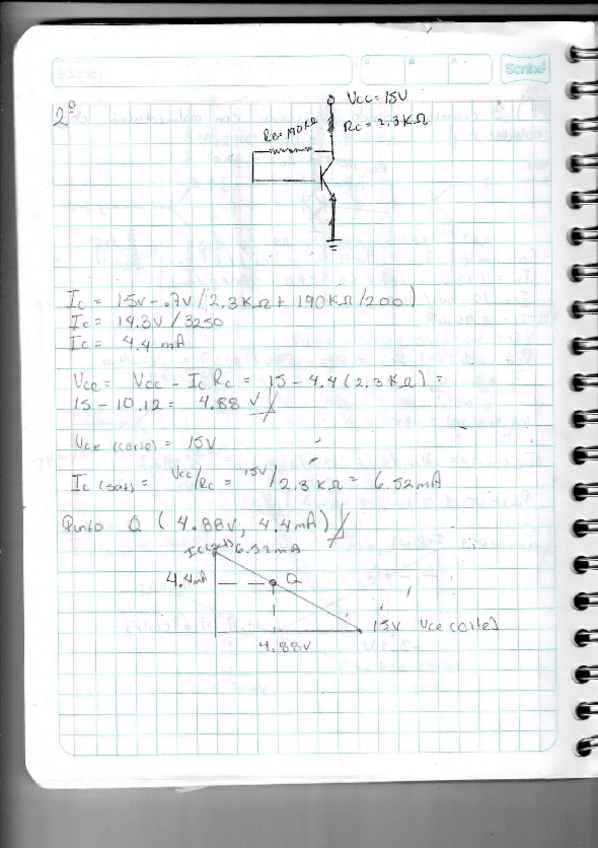 Scribe
2º
Vcc = 15V
RB = 190KΩ
Rc = 2.3KΩ
Ic = 15v - .7v / (2.3KΩ + 190KΩ/200)
Ic = 14.3v / 3250
Ic = 4.4 mA
Vce = Vcc - Ic Rc = 15 - 4.4 (2.3KΩ) =
15 - 10.12 = 4.88 V
Vce (corte) = 15V
Ic (sat) = Vcc/Rc = 15V/2.3KΩ = 6.52mA
Punto Q (4.88v, 4.4mA)
Ic(sat) 6.52mA
4.4mA
Q
15V Vce (corte)
4.88v